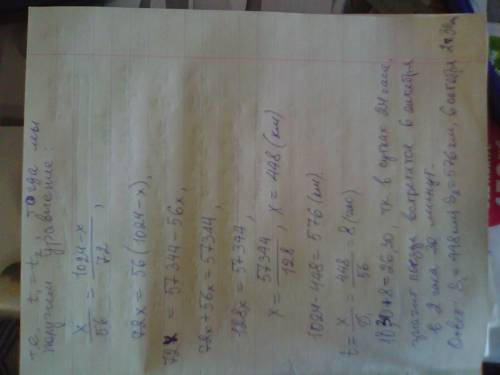 т.е. t₁ = t₂, тогда мы
получим уравнение:
x/56 = (1024-x)/72,
72x = 56(1024-x),
72x = 57344-56x,
72x+56x=57344,
128x=57344,
x = 57344/128, x = 448 (км)
1024-448=576 (км).
t = x/v₁ = 448/56 = 8 (час)
18,30+8=26,30, тк в сутках 24 часа,
значит поезда встретятся 6 октября
в 2 часа 30 минут.
Ответ: S₁=448км S₂=576км, 6 октября 2ч30м